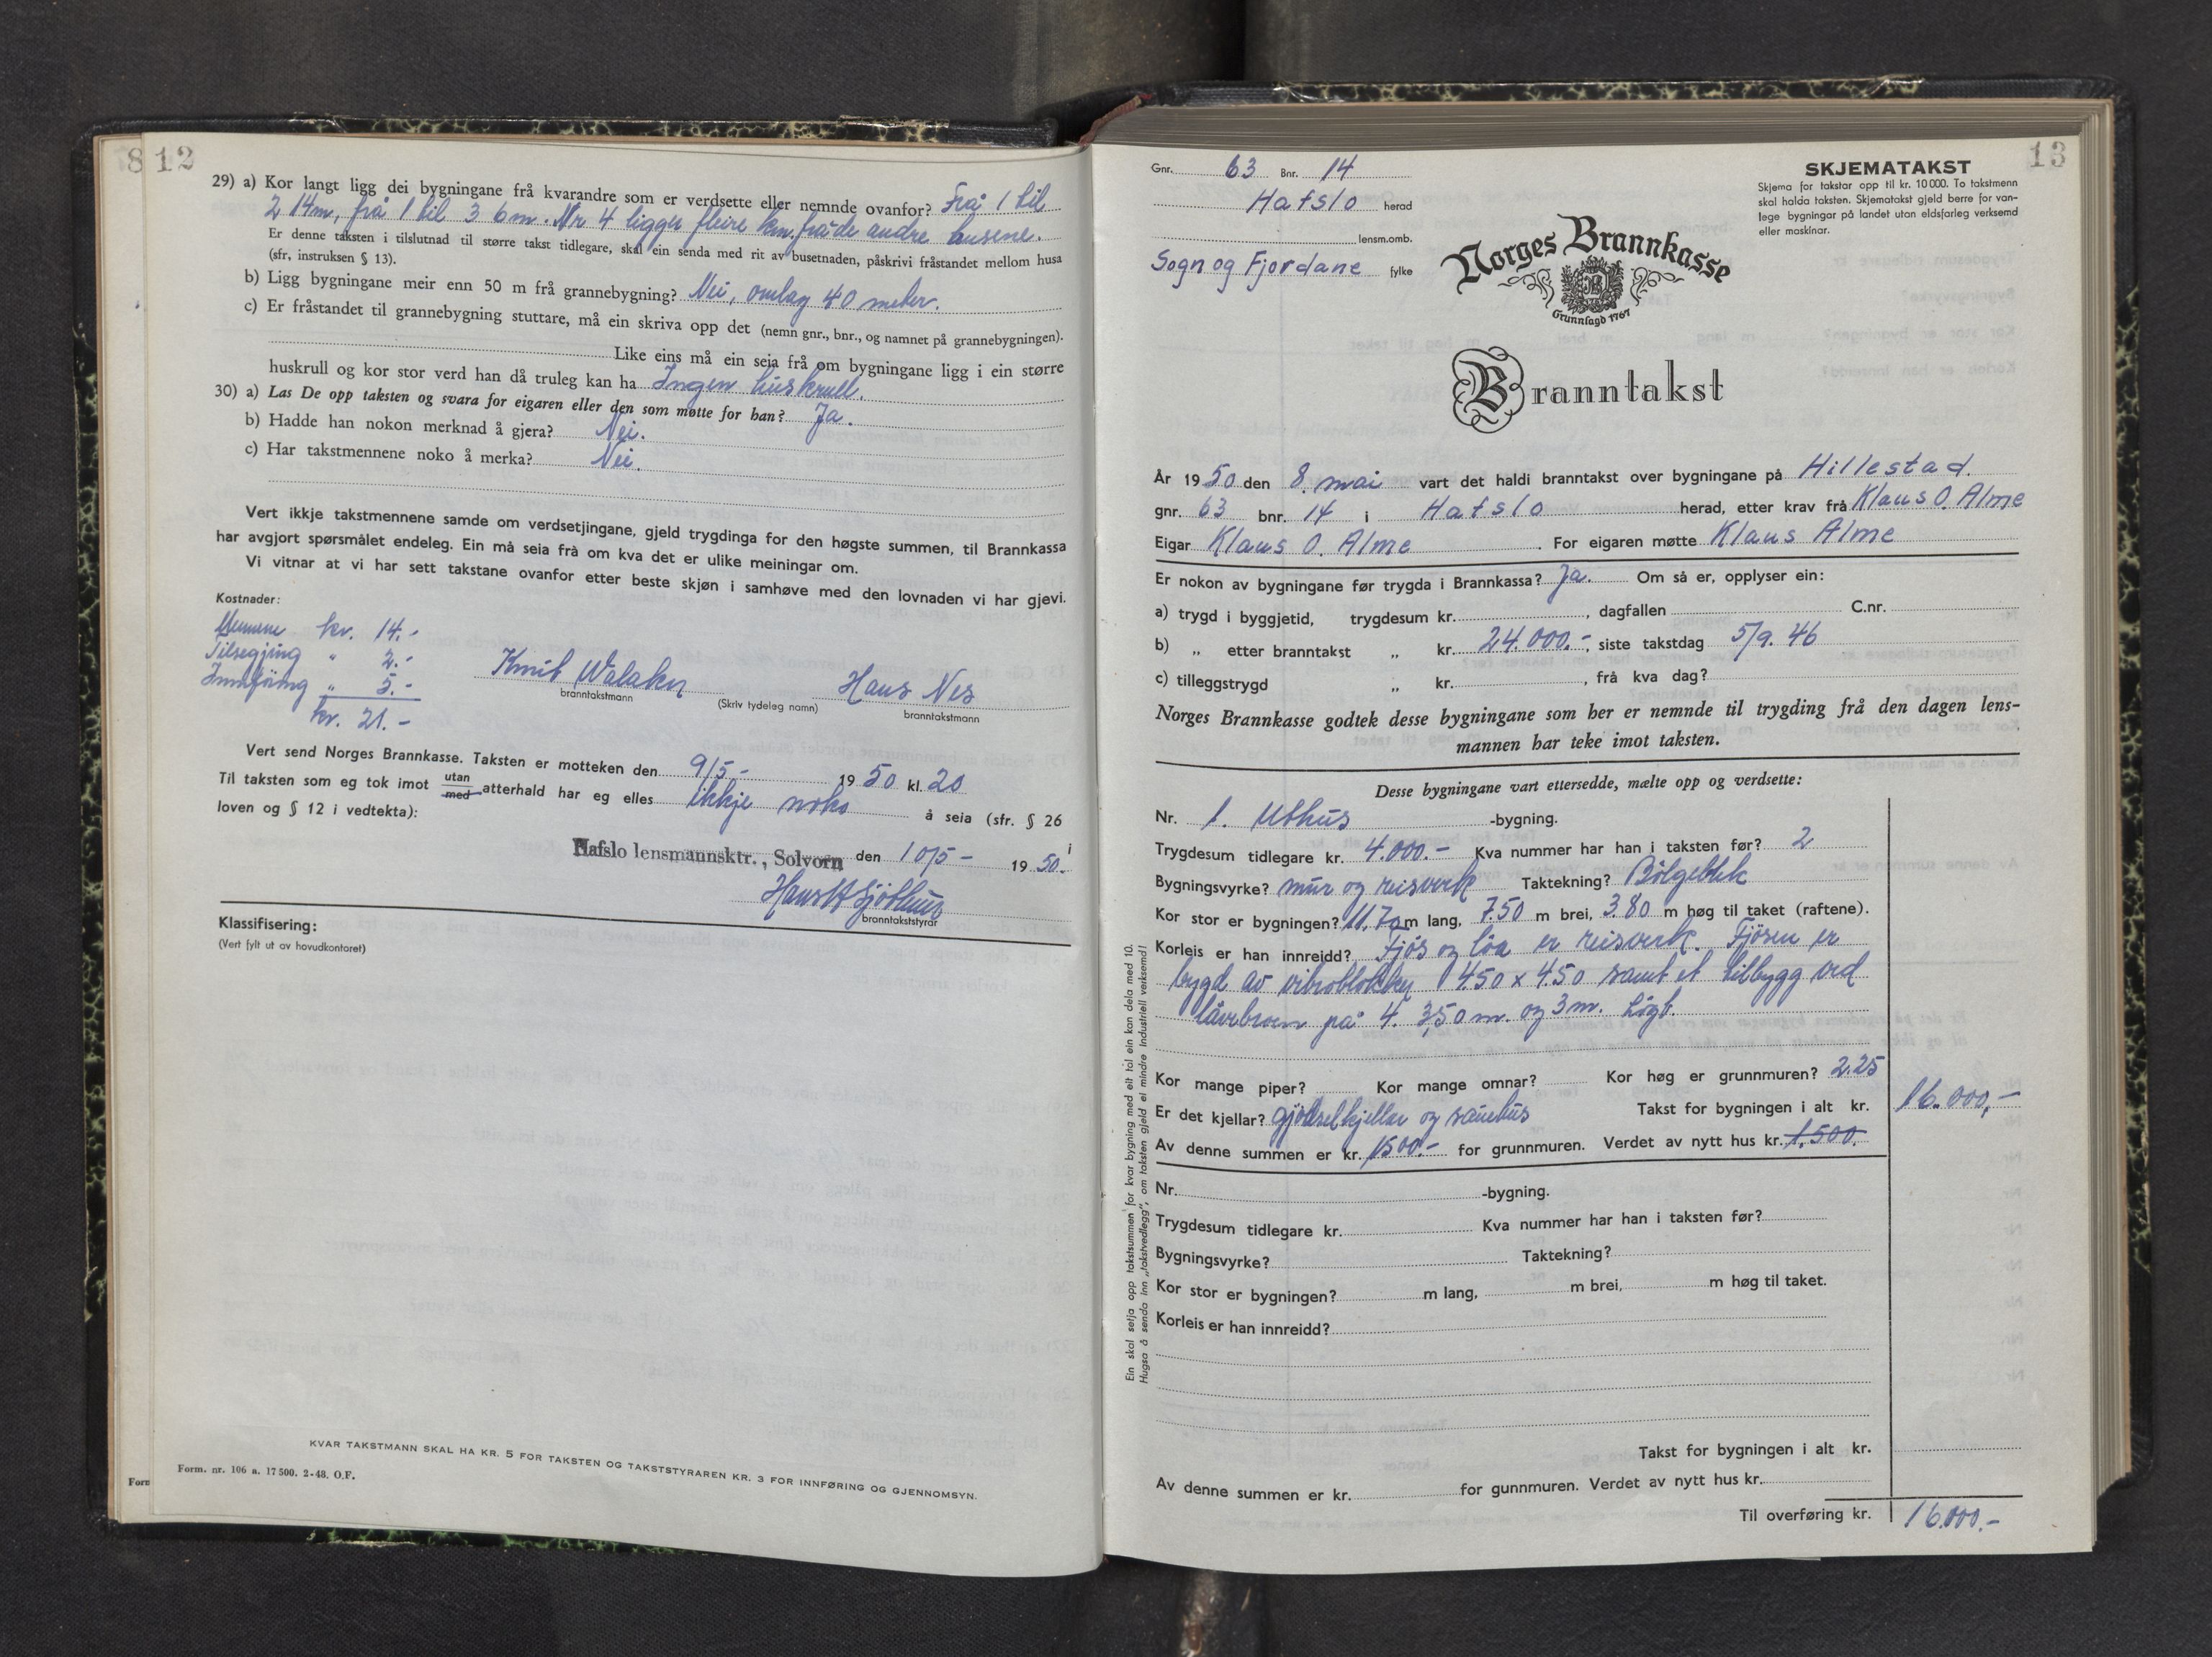 8 12
29) a) Kor langt ligg dei bygningane frå kvarandre som er verdsette eller nemnde ovanfor? Frå 1 til
2 14m, frå 1 til 3 6m. Nr 4 ligger fleire km. frå de andre husene.
Er denne taksten i tilslutnad til større takst tidlegare, skal ein senda med rit av busetnaden, påskrivi fråstandet mellom husa
(sfr, instruksen § 13).
b) Ligg bygningane meir enn 50 m frå grannebygning? Nei, omlag 40 meter.
c) Er fråstandet til grannebygning stuttare, må ein skriva opp det (nemn gnr., bnr., og namnet på grannebygningen).
Like eins må ein seia frå om bygningane ligg i ein større
huskrull og kor stor verd han då truleg kan ha Ingen huskrull.
30) a) Las De opp taksten og svara for eigaren eller den som møtte for han? Ja.
b) Hadde han nokon merknad å gjera? Nei.
c) Har takstmennene noko å merka? Nei.
Vert ikkje takstmennene samde om verdsetjingane, gjeld trygdinga for den høgste summen, til Brannkassa
har avgjort spørsmålet endeleg. Ein må seia frå om kva det er ulike meiningar om.
Vi vitnar at vi har sett takstane ovanfor etter beste skjøn i samhøve med den lovnaden vi har gjevi.
Kostnader:
Mennene kr. 14.-
Tilsegjing " 2.-
Innføring " 5.-
kr. 21.-
Knut Walaker Hans Nes
branntakstmann (Skriv tydeleg namn) branntakstmann
Vert send Norges Brannkasse. Taksten er motteken den 9/5- 19 50 kl. 20
Til taksten som eg tok imot utan med atterhald har eg elles ikkje noko å seia (sfr. § 26
loven og § 12 i vedtekta): i
Hafslo lensmannsktr., Solvorn den 10/5- 19 50.
Hans H Sjøthun
branntakststyrar
Klassifisering:
(Vert fylt ut av hovudkontoret)
KVAR TAKSTMANN SKAL HA KR. 5 FOR TAKSTEN OG TAKSTSTYRAREN KR. 3 FOR INNFØRING OG GJENNOMSYN.
Form Form. nr. 106 a. 17500. 2-48. O.F.
13
Gnr. 63 Bnr. 14
Hafslo herad
lensm.omb.
Sogn og Fjordane fylke
SKJEMATAKST
Skjema for takstar opp til kr. 10000. To takstmenn
skal halda taksten. Skjematakst gjeld berre for van-
lege bygningar på landet utan eldsfarleg verksemd
eller maskinar.
Norges Brannkasse
Grunnlagd 1767
Branntakst
År 19 50 den 8. mai vart det haldi branntakst over bygningane på Hillestad.
gnr. 63 bnr. 14 i Hafslo herad, etter krav frå Klaus O. Alme
Eigar Klaus O. Alme . For eigaren møtte Klaus Alme
Er nokon av bygningane før trygda i Brannkassa? Ja. Om så er, opplyser ein:
a) trygd i byggjetid, trygdesum kr. , dagfallen C.nr.
b) „ etter branntakst „ kr. 24.000.- , siste takstdag 5/9. 46
c) tilleggstrygd „ kr. , frå kva dag?
Norges Brannkasse godtek desse bygningane som her er nemnde til trygding frå den dagen lens-
mannen har teke imot taksten.
Desse bygningane vart ettersedde, mælte opp og verdsette:
Nr. 1. Uthus -bygning.
Trygdesum tidlegare kr. 4.000.- Kva nummer har han i taksten før? 2
Bygningsvyrke? mur og reisverk Taktekning? Bölgeblek
Kor stor er bygningen? 11,70 m lang, 7.50 m brei, 3.80 m høg til taket (raftene).
Korleis er han innreidd? Fjös og löa er reisverk. Fjösen er
bygd av vibroblokker 450 x 4.50 samt et tilbygg ved
låvebroen på 4. 3,50 m. og 3 m. högt.
Kor mange piper? Kor mange omnar? Kor høg er grunnmuren? 2.25
Er det kjellar? gjödselkjellar og sauehus Takst for bygningen i alt kr. 16.000,-
Av denne summen er kr. 1500.- for grunnmuren. Verdet av nytt hus kr. 1.500.
Nr. -bygning.
Trygdesum tidlegare kr. Kva nummer har han i taksten før?
Bygningsvyrke? Taktekning?
Kor stor er bygningen? m lang, m brei, m høg til taket.
Korleis er han innreidd?
Takst for bygningen i alt kr.
Av denne summen er kr. for gunnmuren. Verdet av nytt hus kr.
Til overføring kr. 16.000.-
Ein skal setja opp takstsummen for kvar bygning med eit tal ein kan dela med 10.
Hugsa å senda inn „takstvedlegg", om taksten gjeld ei mindre industriell verksemd!